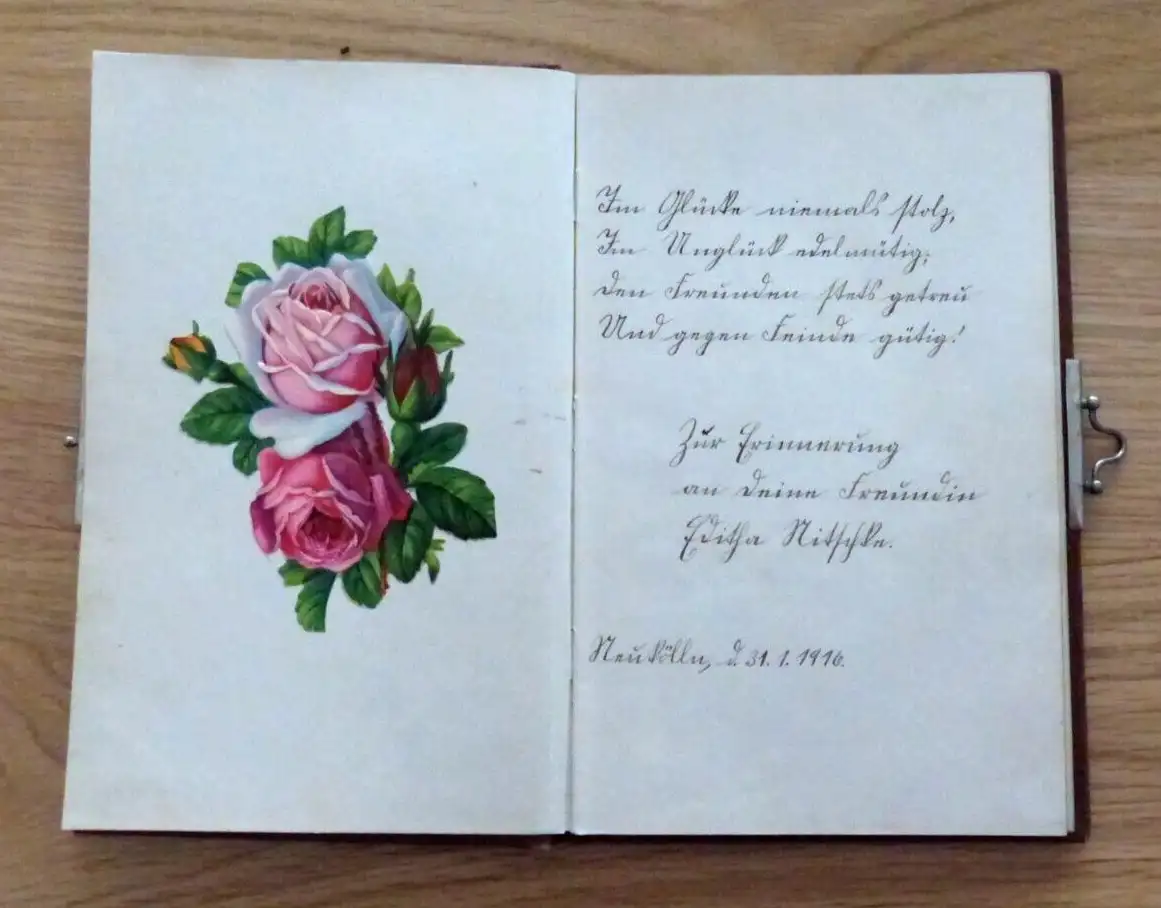 Im Glücke niemals stolz,
Im Unglück edelmütig;
den Freunden stets getreu
Und gegen Feinde gütig!
Zur Erinnerung
an deine Freundin
Editha Nitschke.
Neukölln, d. 31. 1. 1916.